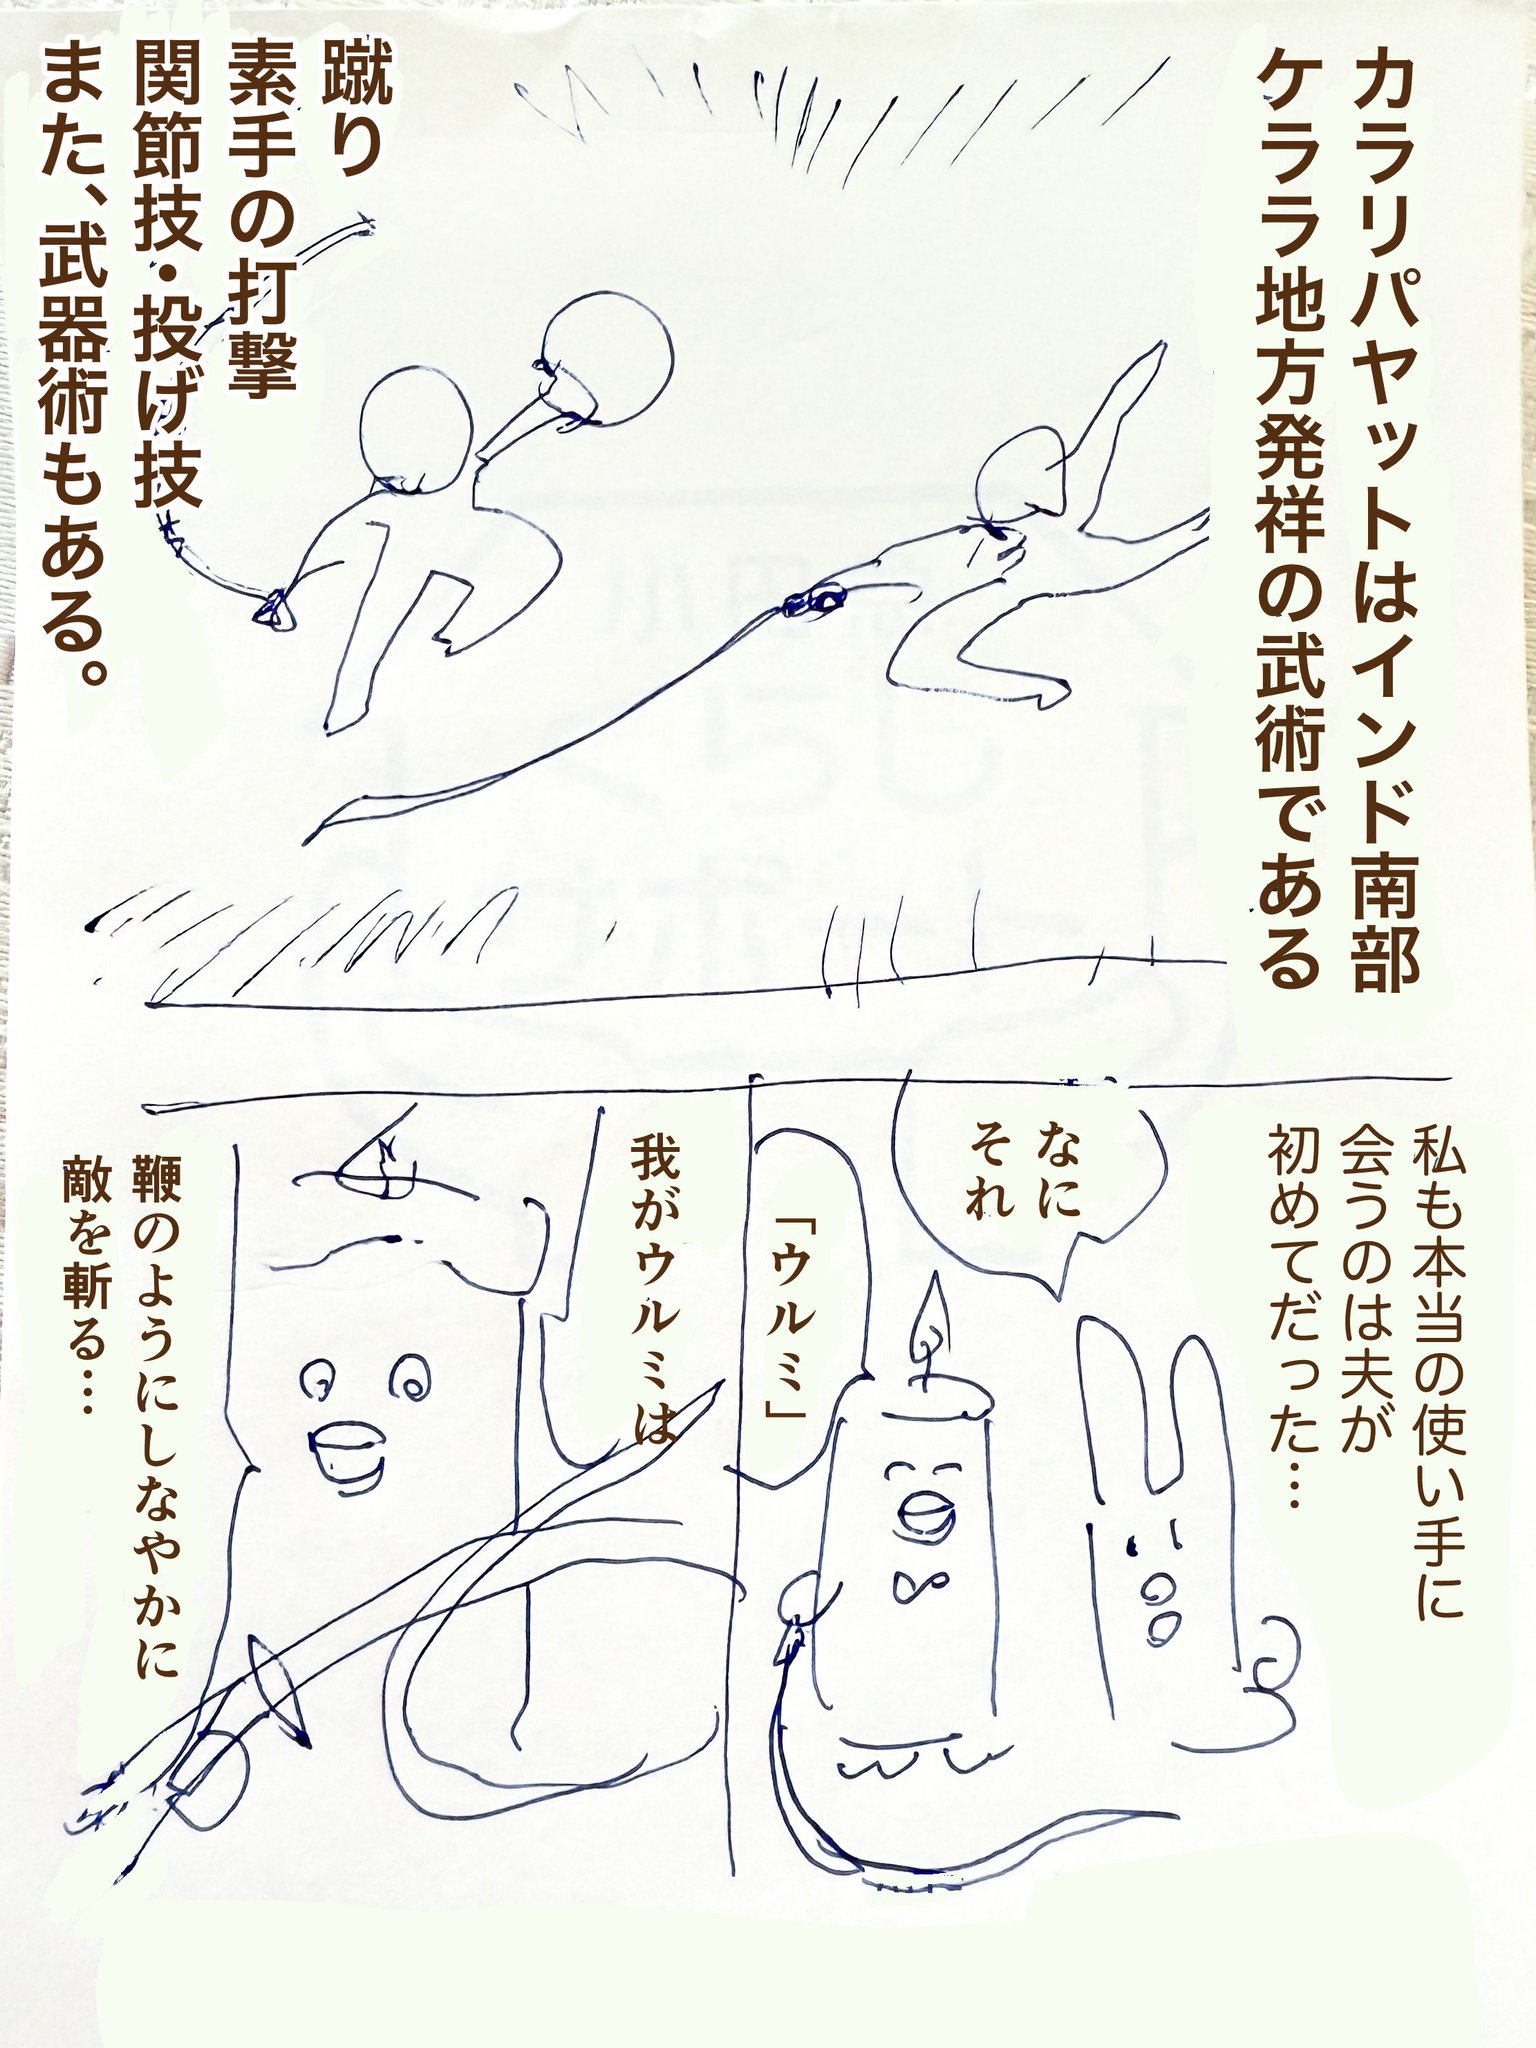 カラリパヤットはインド南部
ケララ地方発祥の武術である
蹴り
素手の打撃
関節技・投げ技
また、武器術もある。
私も本当の使い手に
会うのは夫が
初めてだった…
なに
それ
「ウルミ」
我がウルミは
鞭のようにしなやかに
敵を斬る…